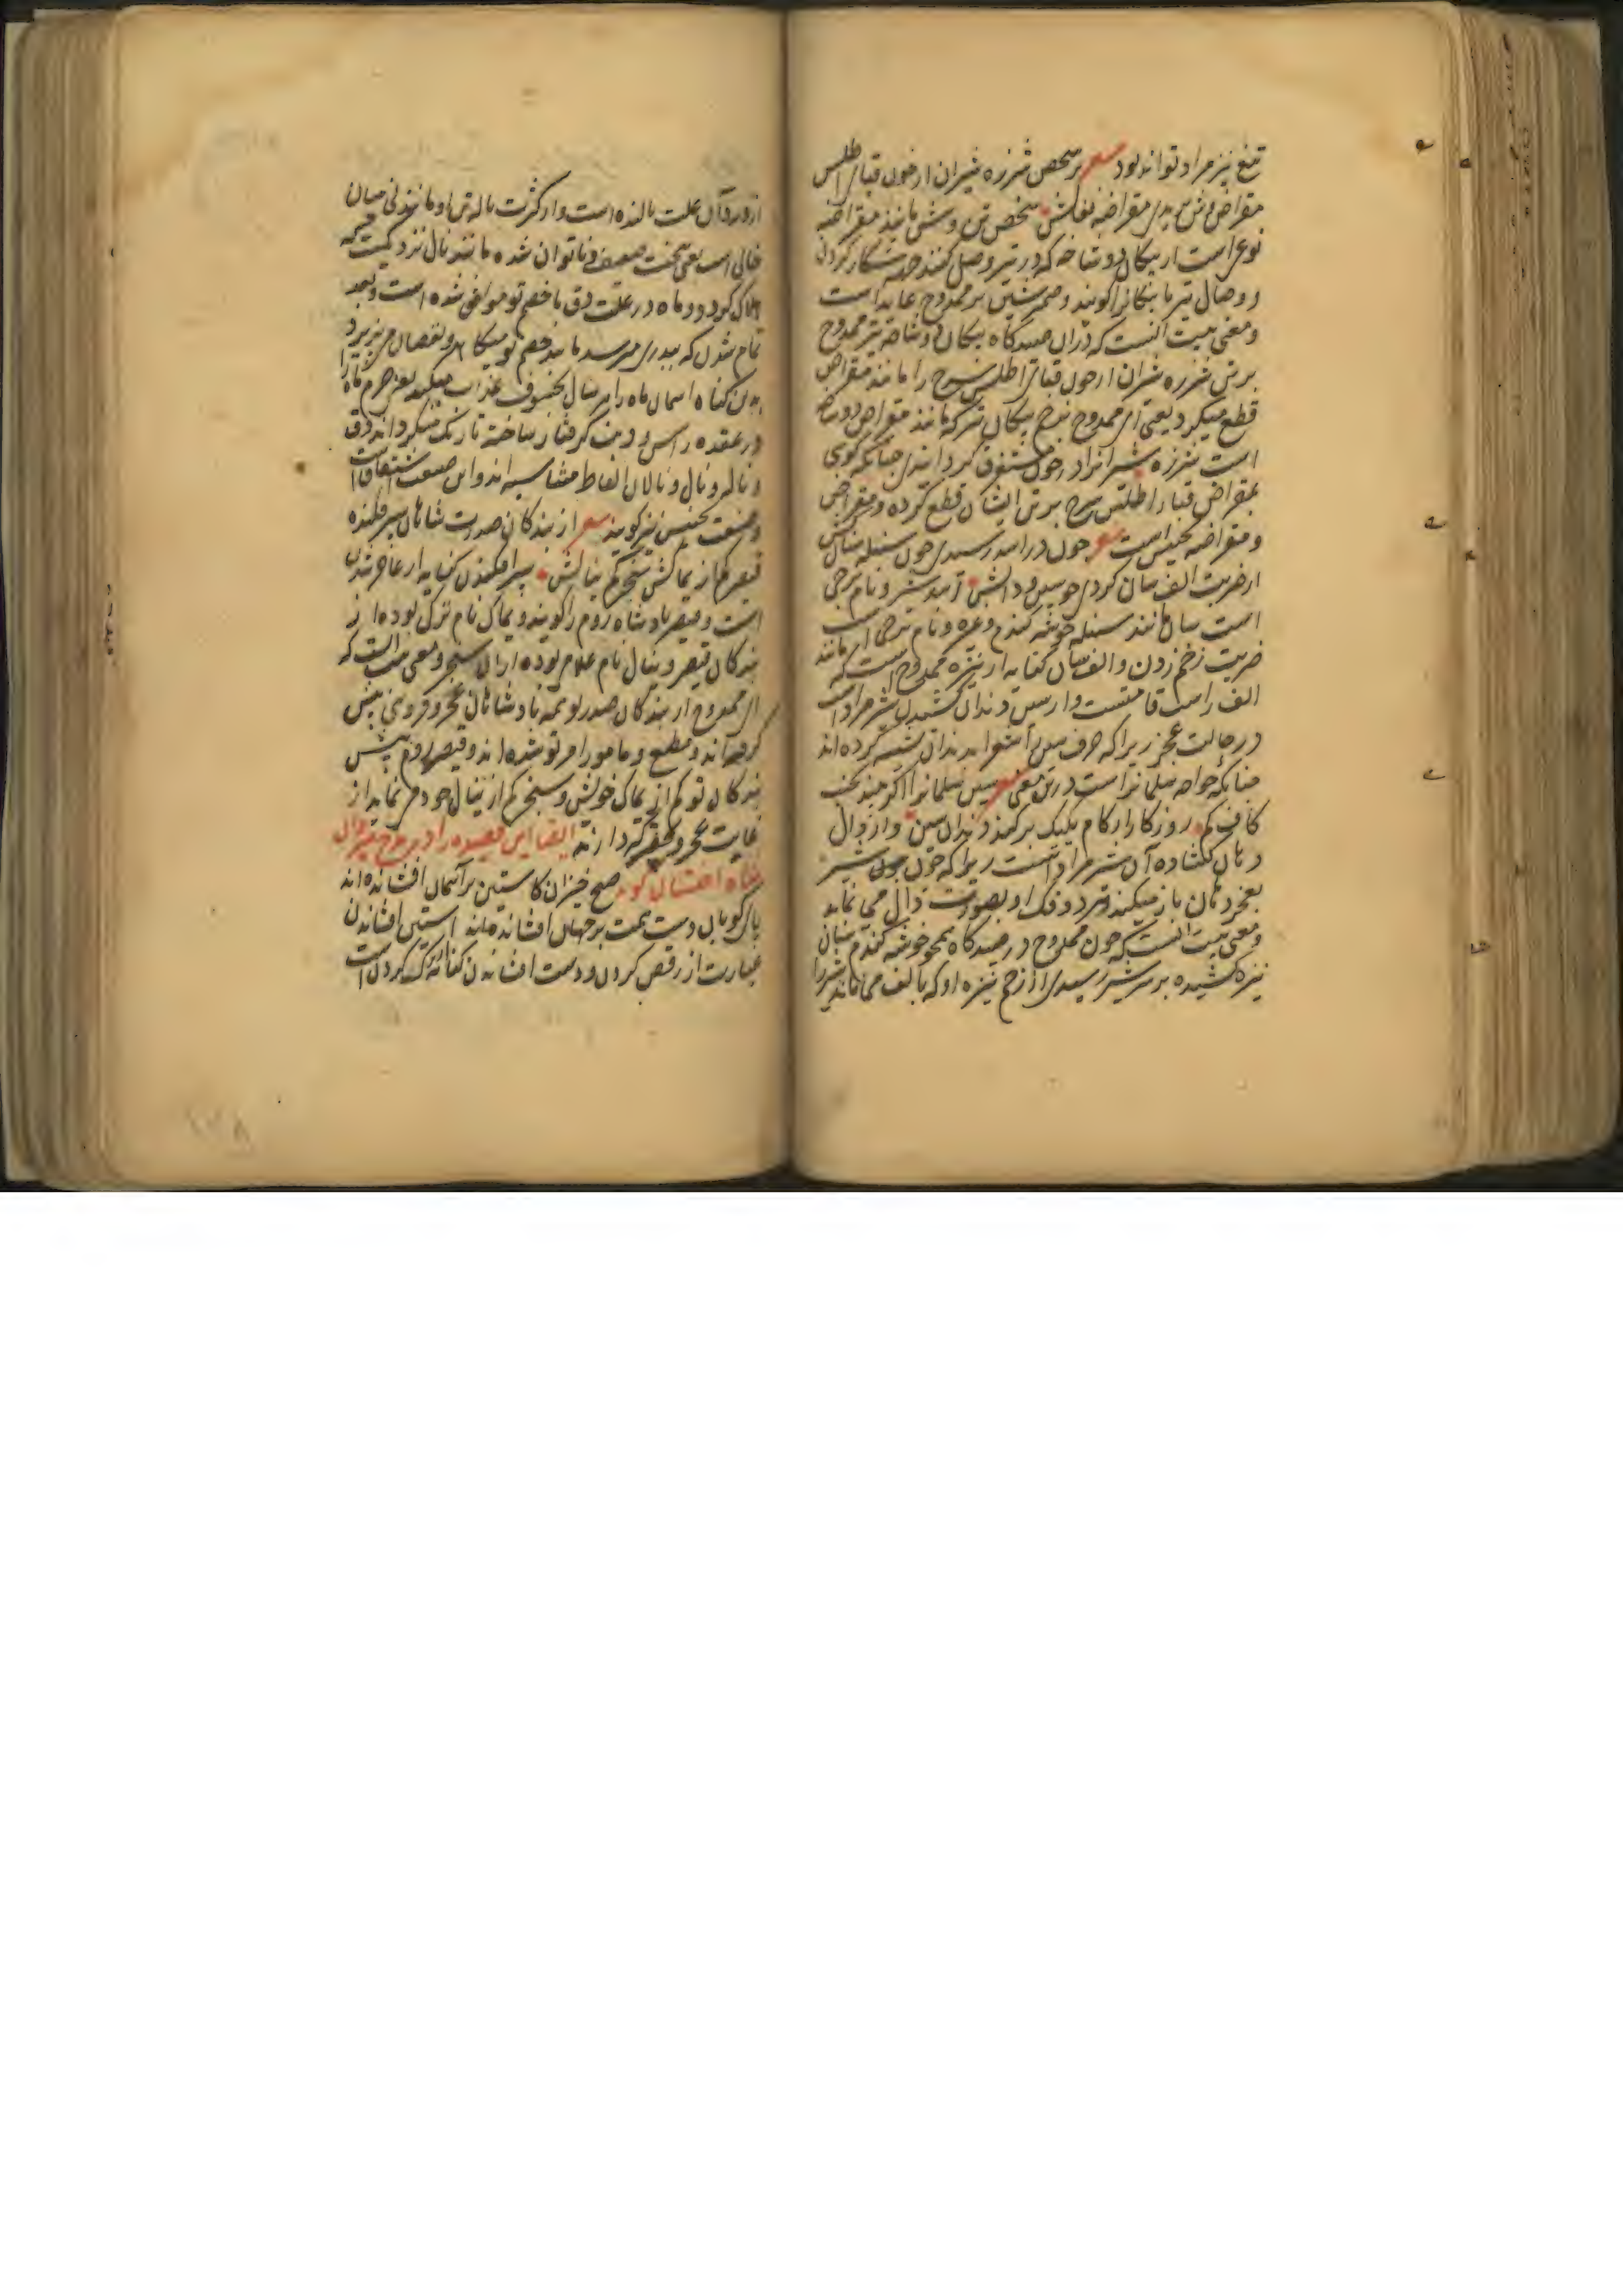 تیغ نیز مراد تواند بود شعر بر شخص شرزه شیران از خون قبای اطلس
مقراض وش بریدی مقراضه نعالش شخص تن و وش مانند مقراضه
نوعی است از پیکان دوشاخه که در تیر وصل کنند جهة شکار کردن
و وصال تیر با پیکانرا کویند و ضمیر شین بر ممدوح عاید است
و معنی بیت آنست که در آن صیدکاه پیکان دوشاخه تیر ممدوح
بر تن شرزه شیران از خون قبای اطلس سرخ را مانند مقراض
قطع میکرد یعنی ای ممدوح پیکان تیر که مانند مقراض دوشاخه
است شرزه شیرانرا در خون کردانیدی چنانکه کویی
بمقراض قبای اطلس سرخ بر تن ایشان قطع کرده و مقراض
و مقراضه تجنیس است شعر چون در اسد رسیدی چون سنبله سنان کش
از ضربت الف سان کردی چو سین و دالش اسد شیر و نام برجی
است سان مانند سنبله خوشه کندم و غیره و نام برجی است
ضربت زخم زدن و الف سان کنایه از نیزه ممدوح است که
الف راست قامتست و از سین دندان شیر مراد است
در حالت عجز زیرا که حرف سین را شعرا بدندان تشبیه کرده اند
چنانکه خواجه سلمانراست درین معنی شعر سین سلمانرا اکر چند
کاف کم روزکار از کام یکیک بر کند دندان سین و از دال
دهان کشاده آن شیر مراد است زیرا که چون شیر
بعجز دهان باز میکند هر دو فک او بصورت دال می نماید
و معنی بیت آنست که چون ممدوح در صیدکاه همچو خوشه کندم سنان
نیزه کشیده بر سر شیر رسیدی از زخم نیزه او که بالف می ماند شیر را
از ورود آن علت نالنده است و از کثرت ناله تن او مانند نی میان
خالی است یعنی سخت ضعیف و ناتوان شده مانند نال نزدیکست که
هلاک کردد و ماه در علت دق با خصم تو موافق شده است و بعد
تمام شدن که ببدری میرسد مانند خصم تو میکاهد و نقصان می پذیرد
بدین کناه آسمان ماه را هر سال بخسوف عذاب میکند یعنی جرم ماه را
در عقده راس و ذنب کرفتار ساخته تاریک میکرداند دق
و ناله و نال و نالان الفاظ متشابه اند و این صنعت اشتقاقست
و صنعت تجنیس نیز کویند شعر از بندکان صدرت شاهان سپر فکنده
قیصر کم از یماکش سنجر کم ینالش سپر افکندن کنایه از عاجز شدن
است و قیصر پادشاه روم را کویند و یماک نام ترکی بوده از
بندکان قیصر و ینال نام غلام بوده از آن سنجر و معنی بیت آنست که
ای ممدوح از بندکان صدر تو همه پادشاهان عجز و فروتنی پیش
کرفته اند و مطیع و مامور امر تو شده اند و قیصر روم پیش
بندکان تو کم از یماک خویش و سنجر کم از ینال خود می نماید از
غایت عجز و فقر که دارند ایضا این قصیده را در مدح
شاه اخستان کوید صبح خیزان کاستین بر آسمان افشانده اند
پای کوبان دست همت بر جهان افشانده اند آستین افشاندن
عبارت از رقص کردن و دست افشاندن کنایه از ترک کردن است